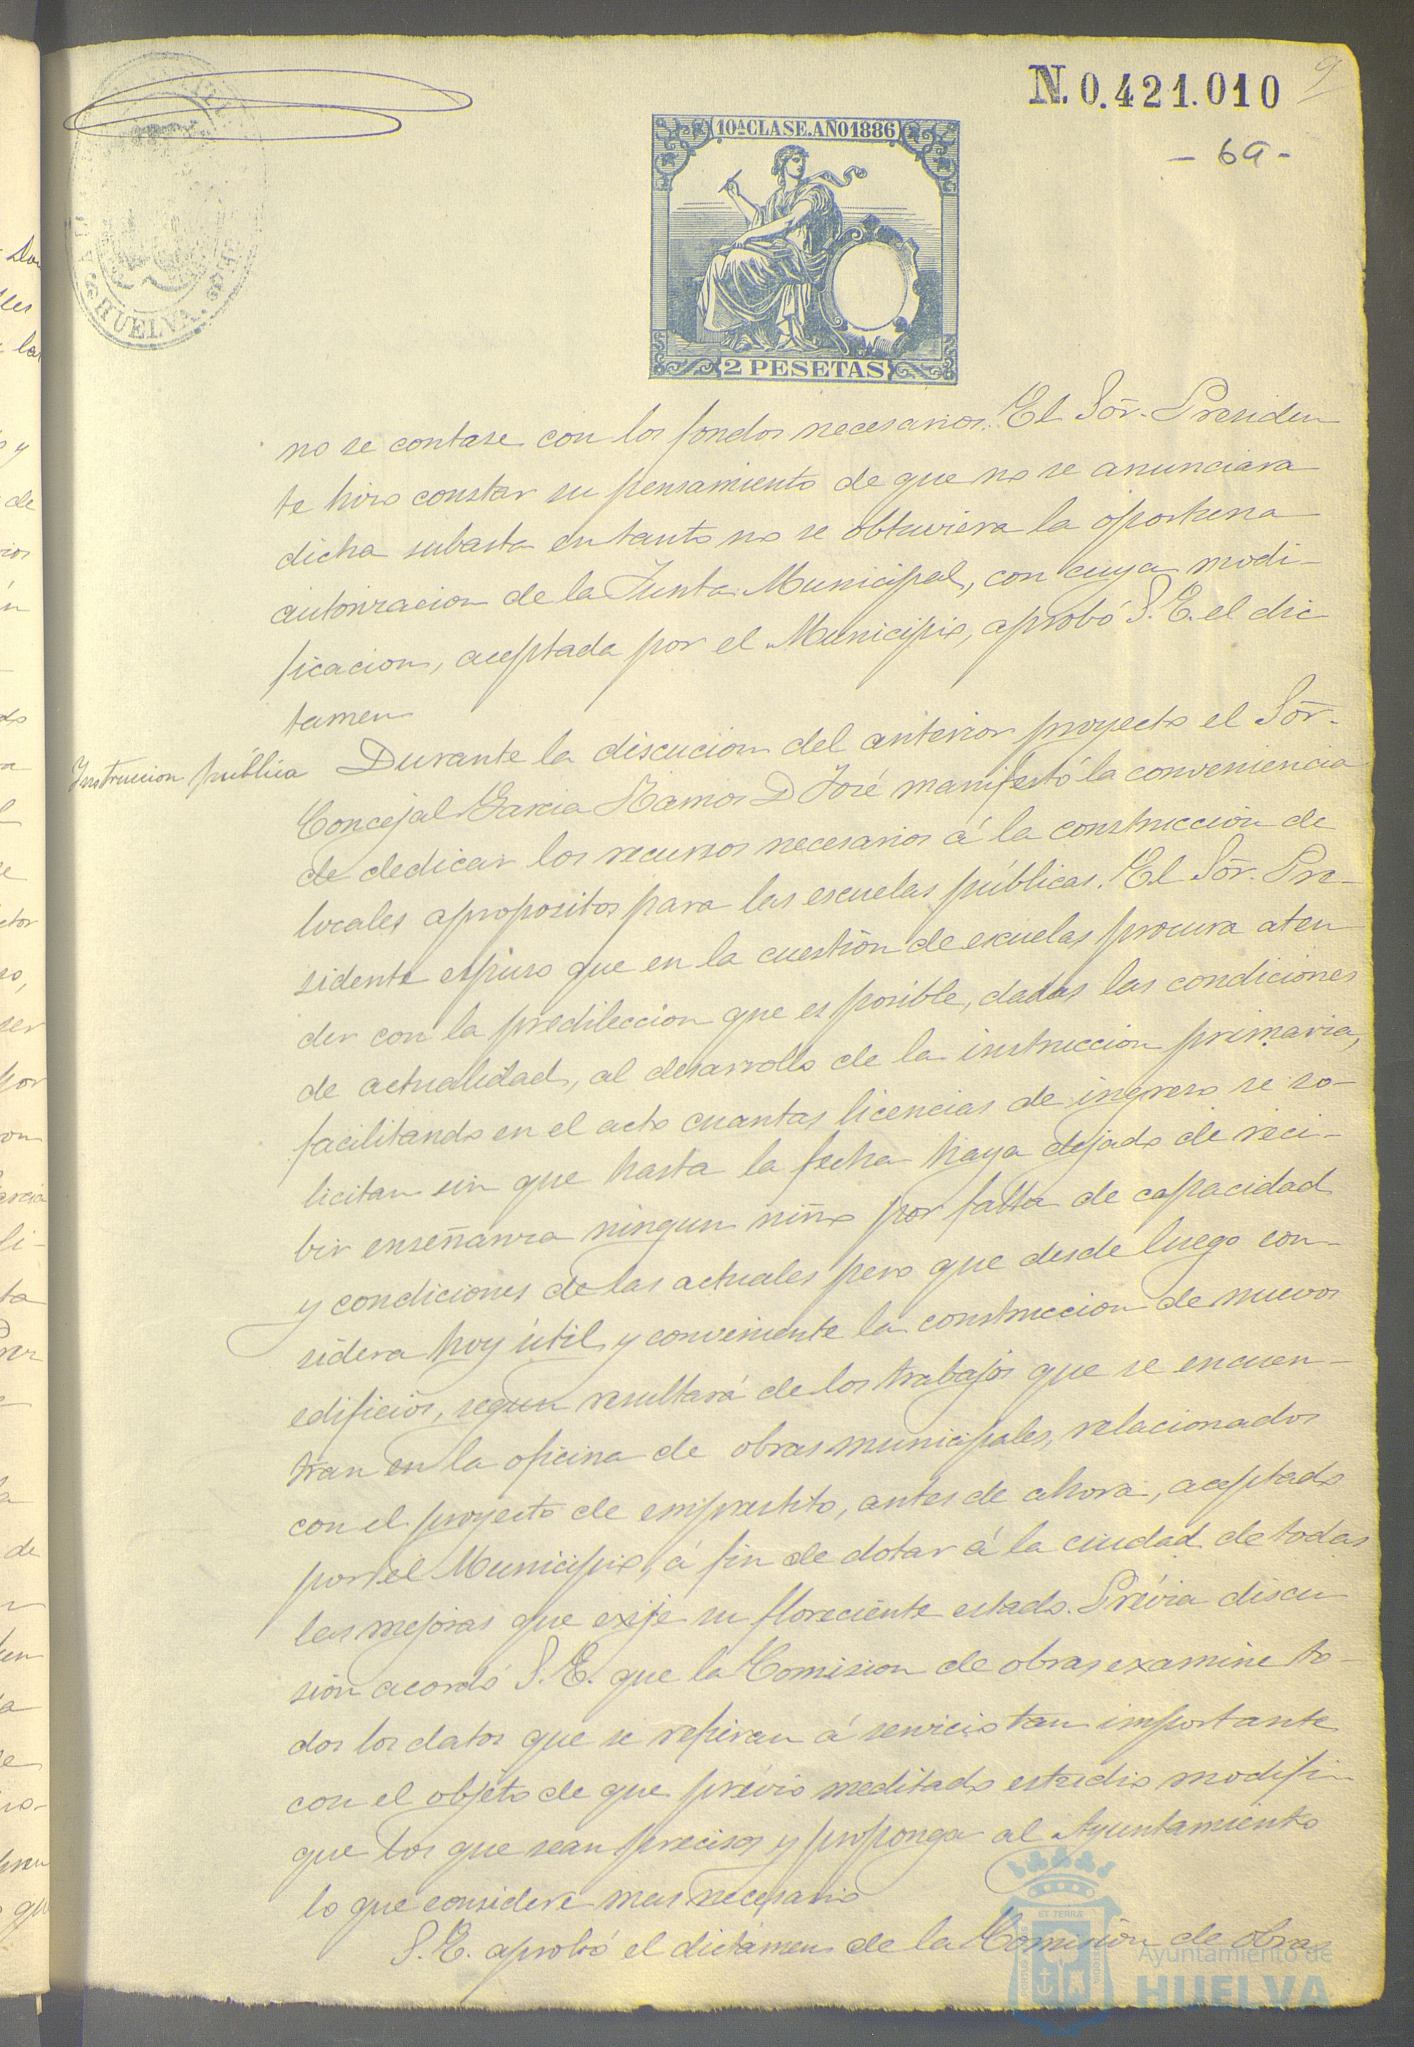 N.0.421.010
9
- 69 -
10ª CLASE. AÑO 1886
2 PESETAS
HUELVA
no se contase con los fondos necesarios. El Sõr. Presiden
te hizo constar su pensamiento de que no se anunciara
dicha subasta en tanto no se obtuviera la oportuna
autorizacion de la Junta Municipal, con cuya modi-
ficacion, aceptada por el Municipio, aprobó S. E. el dic
tamen
Instruccion pública
Durante la discucion del anterior proyecto el Sõr.
Concejal Garcia Ramos D José manifestó la conveniencia
de dedicar los recursos necesarios á la construccion de
locales apropositos para las escuelas públicas. El Sõr. Pre-
sidente espuso que en la cuestión de escuelas procura aten
der con la predileccion que es posible, dadas las condiciones
de actualidad, al desarrollo de la instruccion primaria,
facilitando en el acto cuantas licencias de ingreso se so-
licitan sin que hasta la fecha haya dejado de reci-
bir enseñanza ningun niño por falta de capacidad
y condiciones de las actuales pero que desde luego con-
sidera hoy útil y conveniente la construccion de nuevos
edificios, segun resultará de los trabajos que se encuen-
tran en la oficina de obras municipales, relacionados
con el proyecto de emprestito, antes de ahora, aceptado
por el Municipio, á fin de dotar á la ciudad de todas
las mejoras que exije su floreciente estado. Prévia discu
sion acordó S. E. que la Comision de obras examine to-
dos los datos que se refieran á servicio tan importante
con el objeto de que prévio meditado estudio modifi-
que los que sean precisos y proponga al Ayuntamiento
lo que considere mas necesario
S. E. aprobó el dictámen de la Comisión de obras
Ayuntamiento de
HUELVA